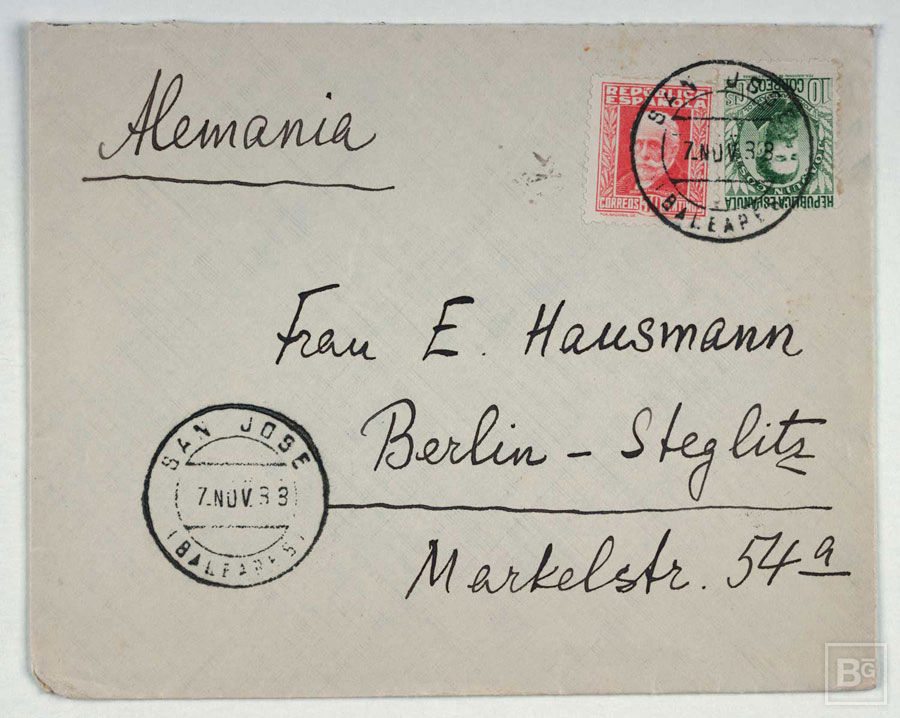 Alemania
REPUBLICA
ESPAÑOLA
CORREOS
10 CORREOS
REPUBLICA ESPAÑOLA
SAN JOSE
7.NOV.33
(BALEARES)
Frau E. Hausmann
Berlin - Steglitz
Markelstr. 54a
SAN JOSE
7.NOV.33
(BALEARES)
BG